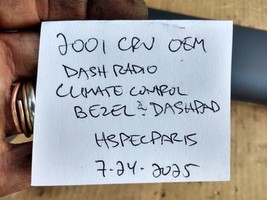 2001 CRV OEM
DASH RADIO
CLIMATE CONTROL
BEZEL & DASHPAD
HSPECPARIS
7-24-2025